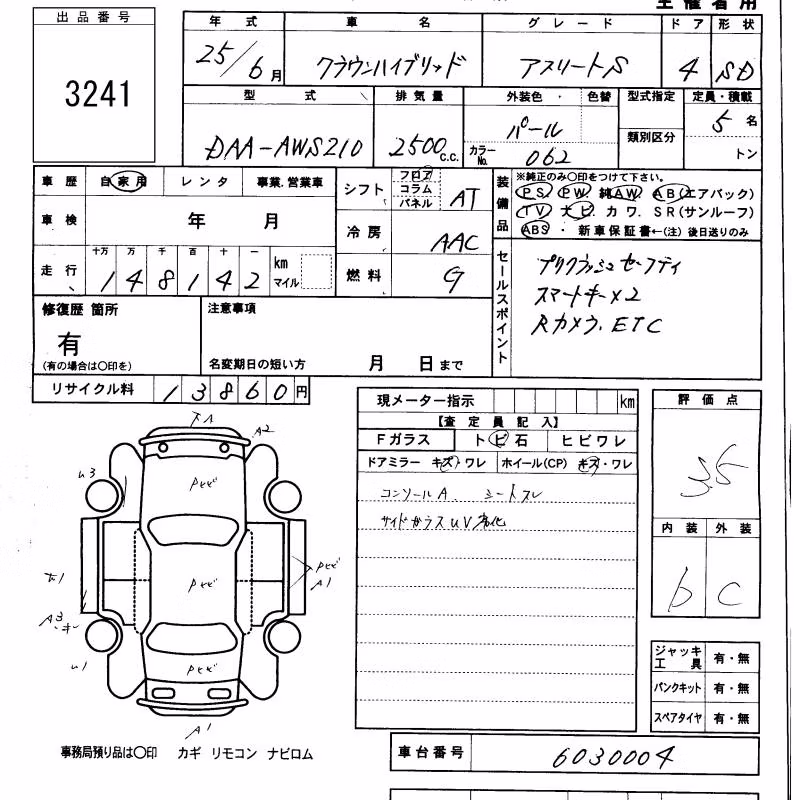 主催者用
出品番号
3241
年式 車名 グレード ドア 形状
25/6月 クラウンハイブリッド アスリートS 4 SD
型式 排気量 外装色・色替 型式指定 定員・積載
DAA-AWS210 2500c.c. パール 5名
カラーNo. 062 類別区分 トン
車歴 自家用 レンタ 事業.営業車
シフト フロア コラム パネル AT
装備品 ※純正のみ○印をつけて下さい。
PS. PW 純AW. AB(エアバック)
TV ナビ. カワ. SR(サンルーフ)
ABS ・ 新車保証書←(注) 後日送りのみ
車検 年 月
冷房 AAC
走行 十万 万 千 百 十 一
148142 km マイル
燃料 G
セールスポイント
プリクラッシュセーフティ
スマートキー×2
Rカメラ. ETC
修復歴 箇所
有
(有の場合は○印を)
注意事項
名変期日の短い方 月 日まで
リサイクル料 13860円
現メーター指示 km
【査定員記入】
Fガラス トビ石 ヒビワレ
ドアミラー キズ・ワレ ホイール(CP) キズ・ワレ
コンソールA. シートスレ
サイドガラスUV劣化
評価点
3.5
内装 外装
b C
A2
U3
Pセビ
Pセビ
Pセビ
A1
A3
Pセビ
A1
ジャッキ工具 有・無
パンクキット 有・無
スペアタイヤ 有・無
事務局預り品は○印 カギ リモコン ナビロム
車台番号 6030004